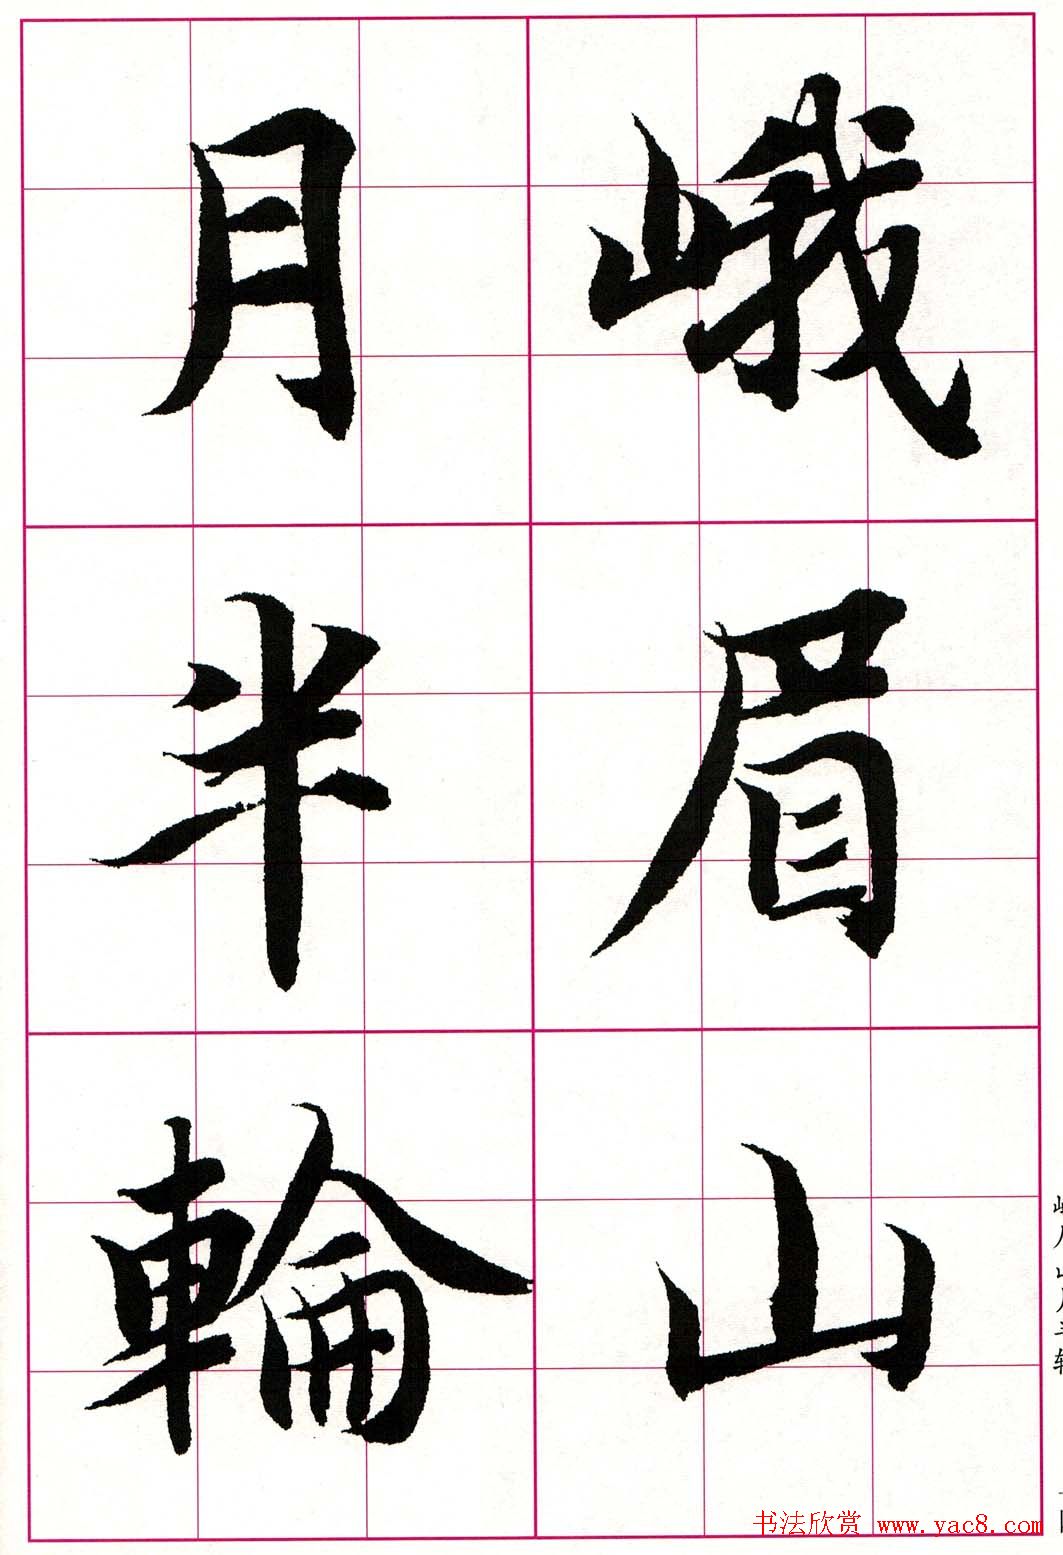 峨眉山
月半輪
书法欣赏 www.yac8.com